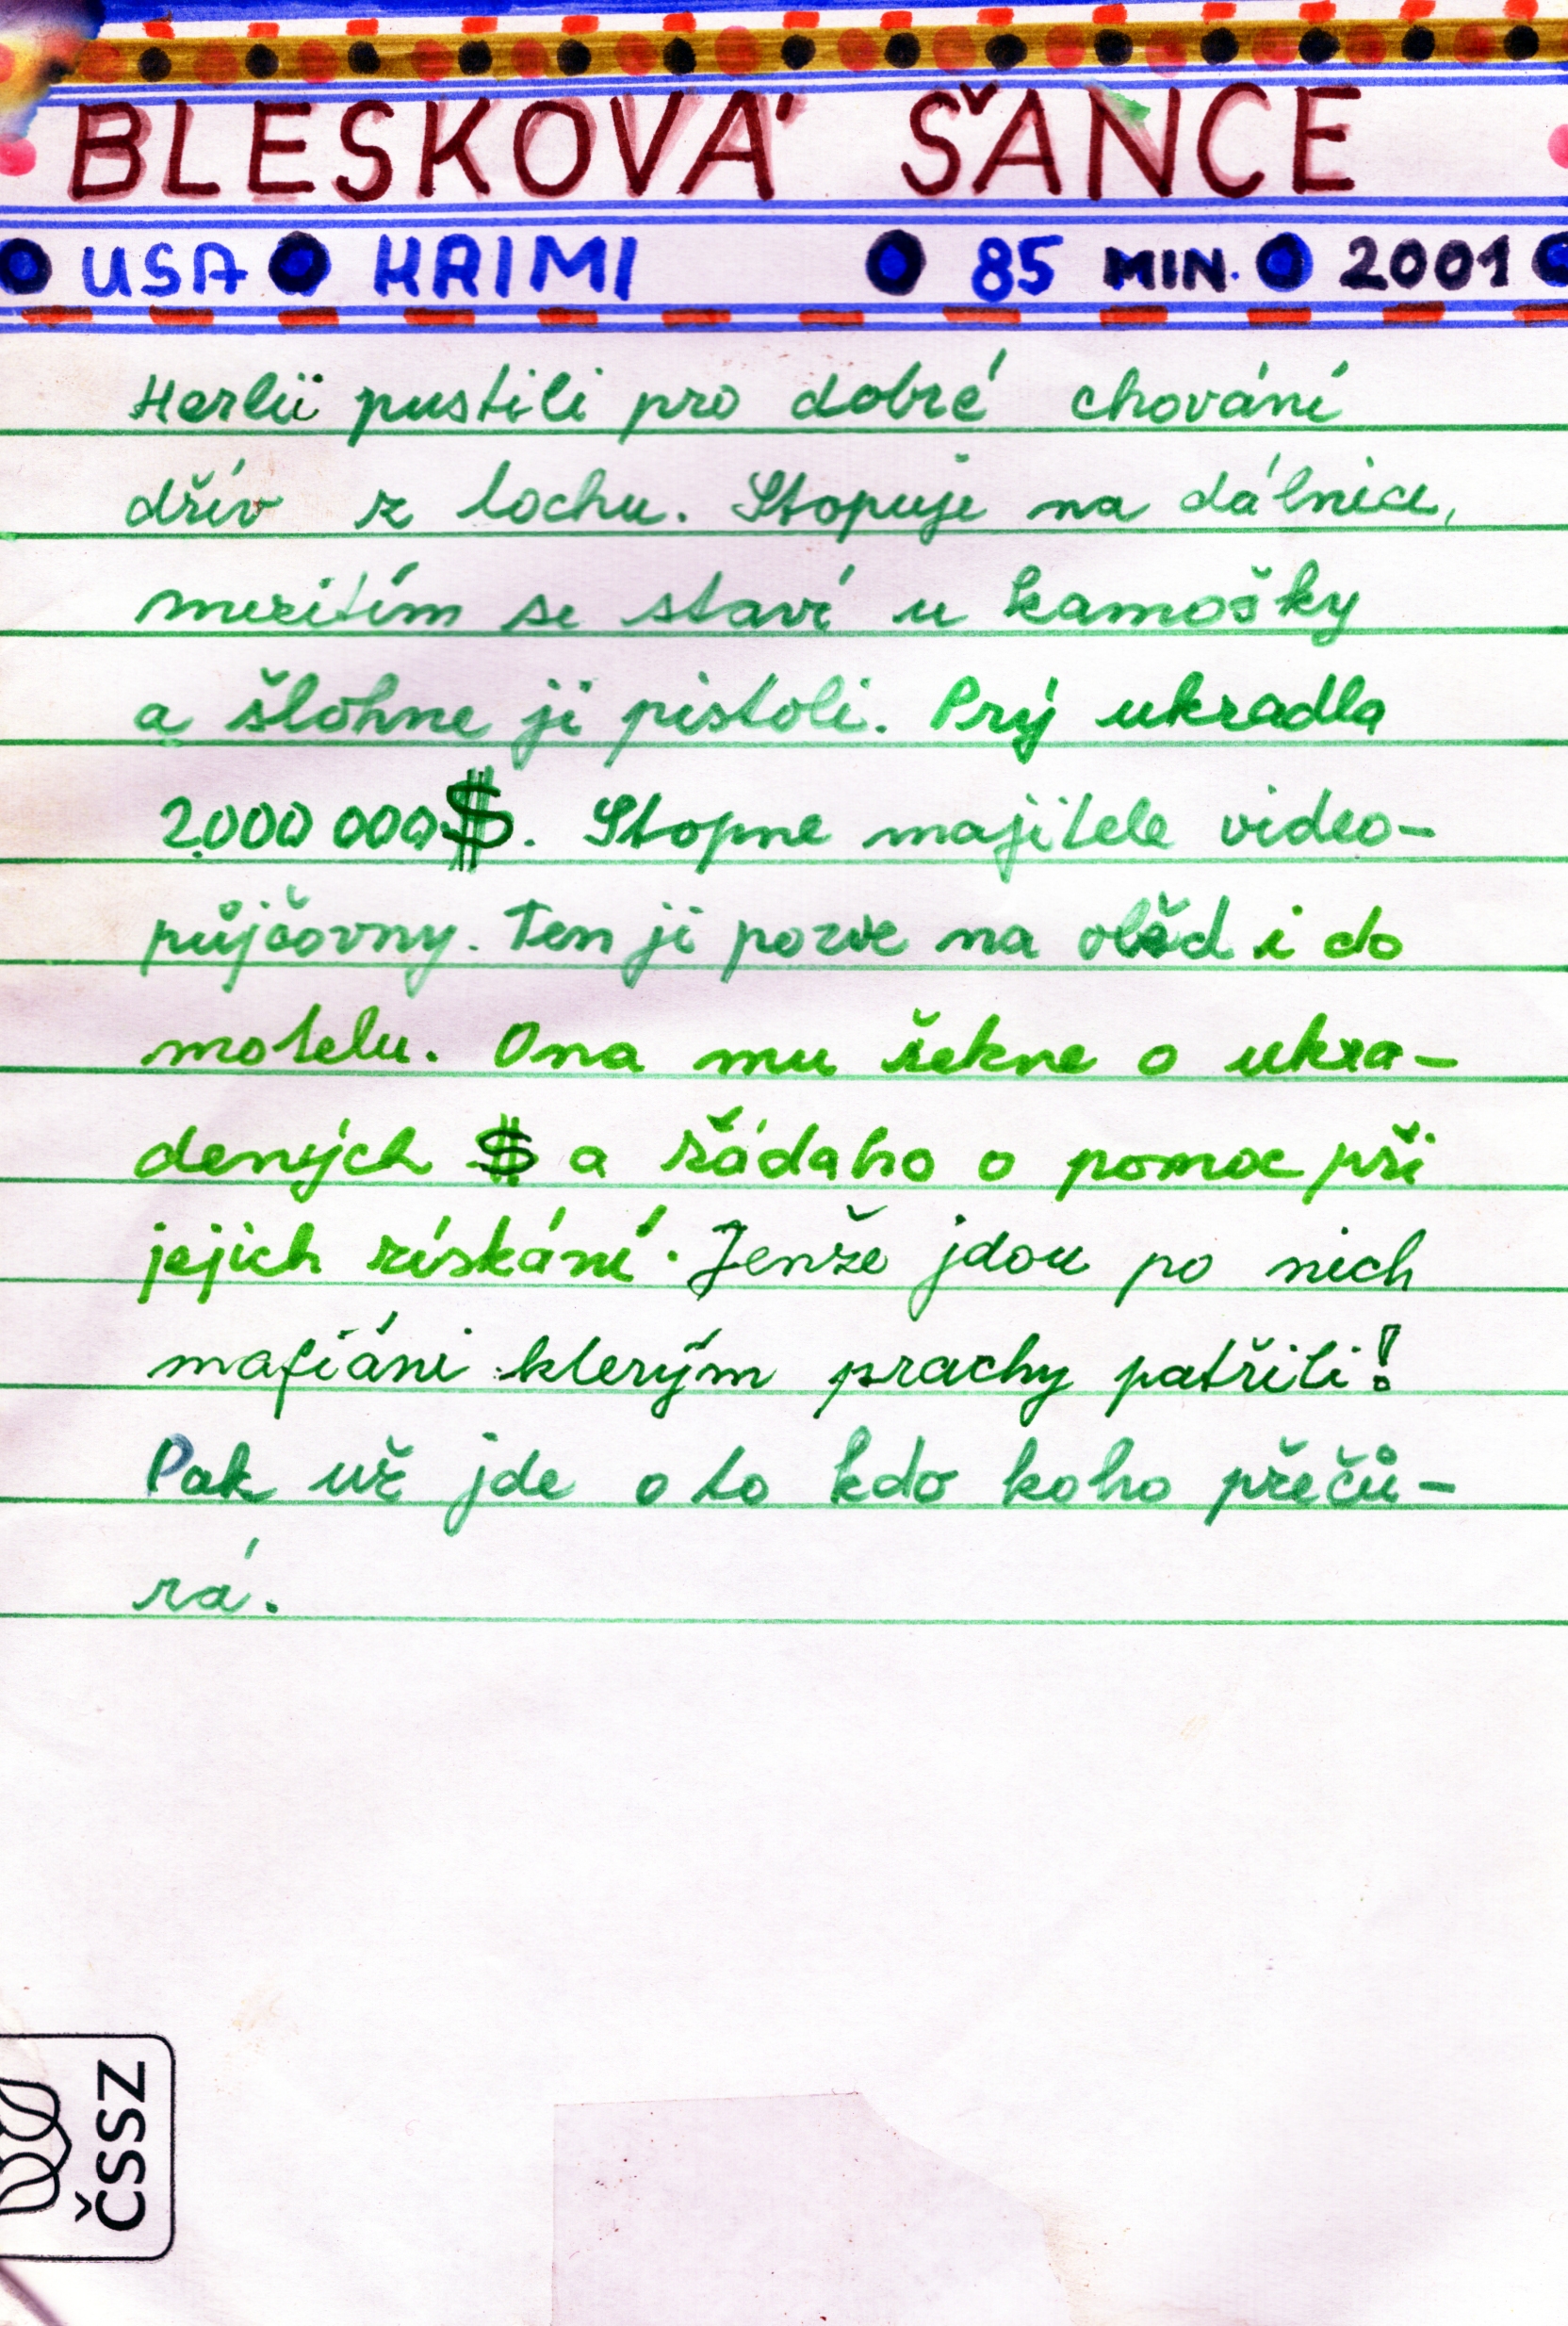 BLESKOVÁ ŠANCE
USA KRIMI 85 MIN. 2001
Herlii pustili pro dobré chování
dřív z lochu. Stopuje na dálnici,
mezitím se staví u kamošky
a šlohne ji pistoli. Prý ukradla
2.000 000 $. Stopne majitele video-
půjčovny. Ten ji pozve na oběd i do
motelu. Ona mu řekne o ukra-
dených $ a žádaho o pomoc při
jejich získání. Jenže jdou po nich
mafiáni kterým prachy patřili!
Pak už jde o to kdo koho přečů-
rá.
ČSSZ